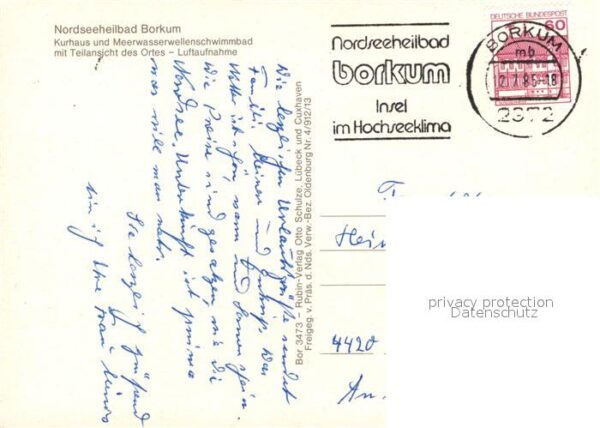 Nordseeheilbad Borkum
Kurhaus und Meerwasserwellenschwimmbad
mit Teilansicht des Ortes – Luftaufnahme
Nordseeheilbad
borkum
Insel
im Hochseeklima
DEUTSCHE BUNDESPOST
60
BORKUM
mb
2.7.85-18
2972
Bor 3473 – Rubin-Verlag Otto Schulze, Lübeck und Cuxhaven
Freigeg. v. Präs. d. Nds. Verw.-Bez. Oldenburg Nr. 4/912/13
Die herzlichsten Urlaubsgrüße sendet
Familie und Das
Wetter ist schön, warm und Sonnenschein.
Die Preise sind gesalzen, wie die
Nordsee. Unterkunft ist prima
was will man mehr.
Sie herzlich grüßend
bin ich Ihre Frau
Hein
4420
An
privacy protection
Datenschutz